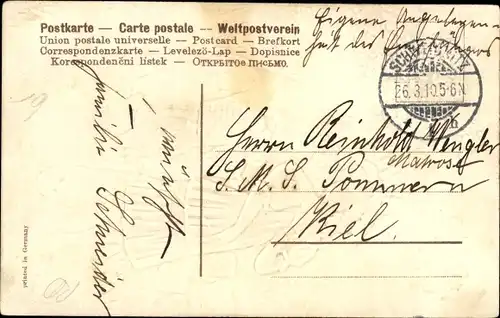 Postkarte — Carte postale — Weltpostverein
Union postale universelle — Postcard — Brefkort
Correspondenzkarte — Levelező-Lap — Dopisnice
Korespondenční listek — Открытое письмо.
Eigene Angelegen-
heit des Empfängers
26.3.10.5-6N
Herrn Reinhold Wengler
Matrose
S. M. S. Pommern
Kiel.
wünscht
Familie Schneider
printed in Germany